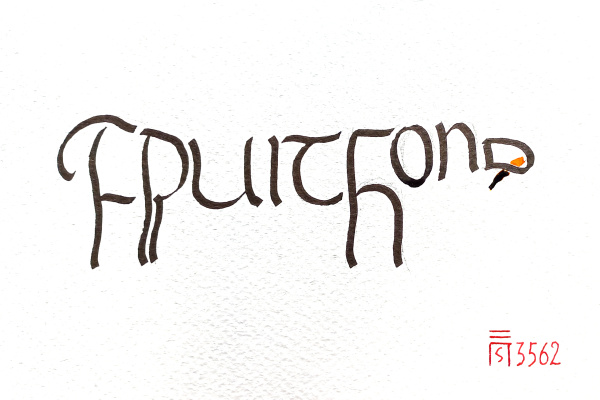 FRuitFonD
3562